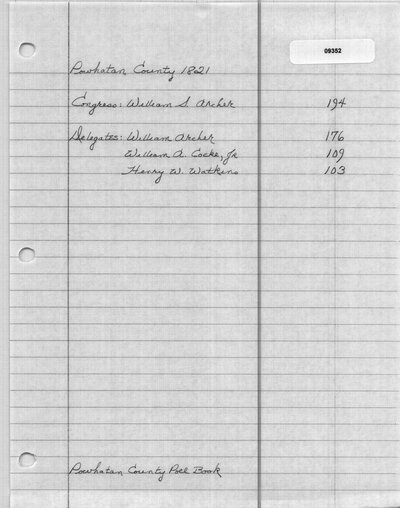 09352
Powhatan County 1821
Congress: William S. Archer 194
Delegates: William Archer 176
William A. Cocke, Jr 109
Henry W. Watkins 103
Powhatan County Poll Book